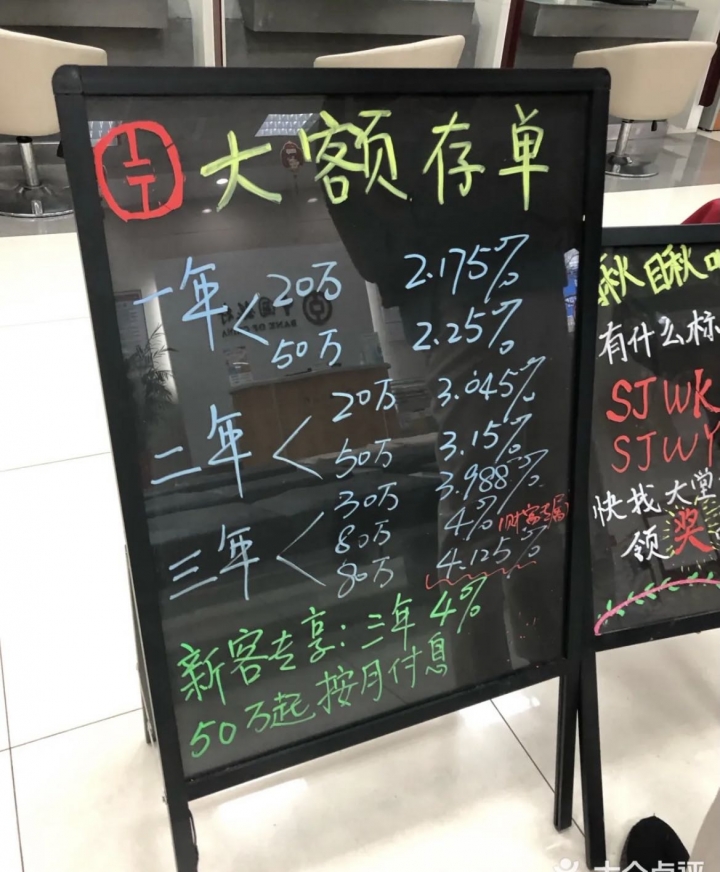 大额存单
一年 20万 2.175%
50万 2.25%
二年 20万 3.045%
50万 3.15%
三年 30万 3.988%
80万 4% (财富专属
80万 4.125%
新客专享:三年4%
50万起按月付息
中国银行
BANK OF CHINA
有什么标
SJWK
SJWY
快找大堂
领奖
大众点评